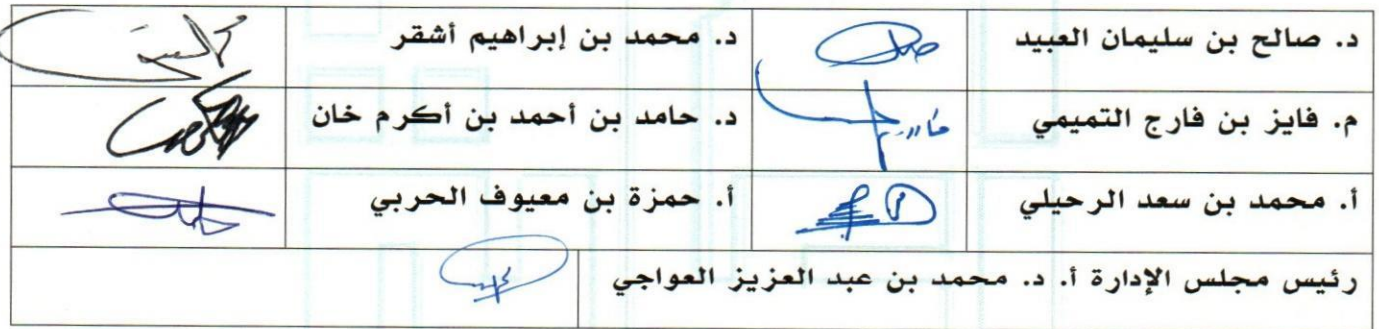 د. صالح بن سليمان العبيد
د. محمد بن إبراهيم أشقر
م. فايز بن فارج التميمي
د. حامد بن أحمد بن أكرم خان
أ. محمد بن سعد الرحيلي
أ. حمزة بن معيوف الحربي
رئيس مجلس الإدارة أ. د. محمد بن عبد العزيز العواجي